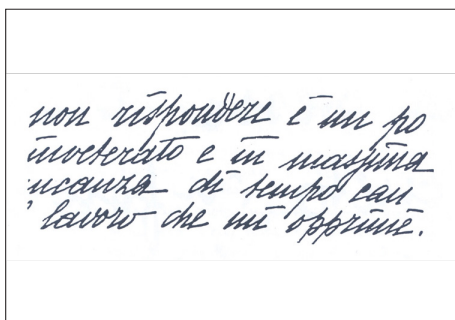 non rispondere è un po
inveterato e in massima
ncanza di tempo cau
lavoro che mi opprime.